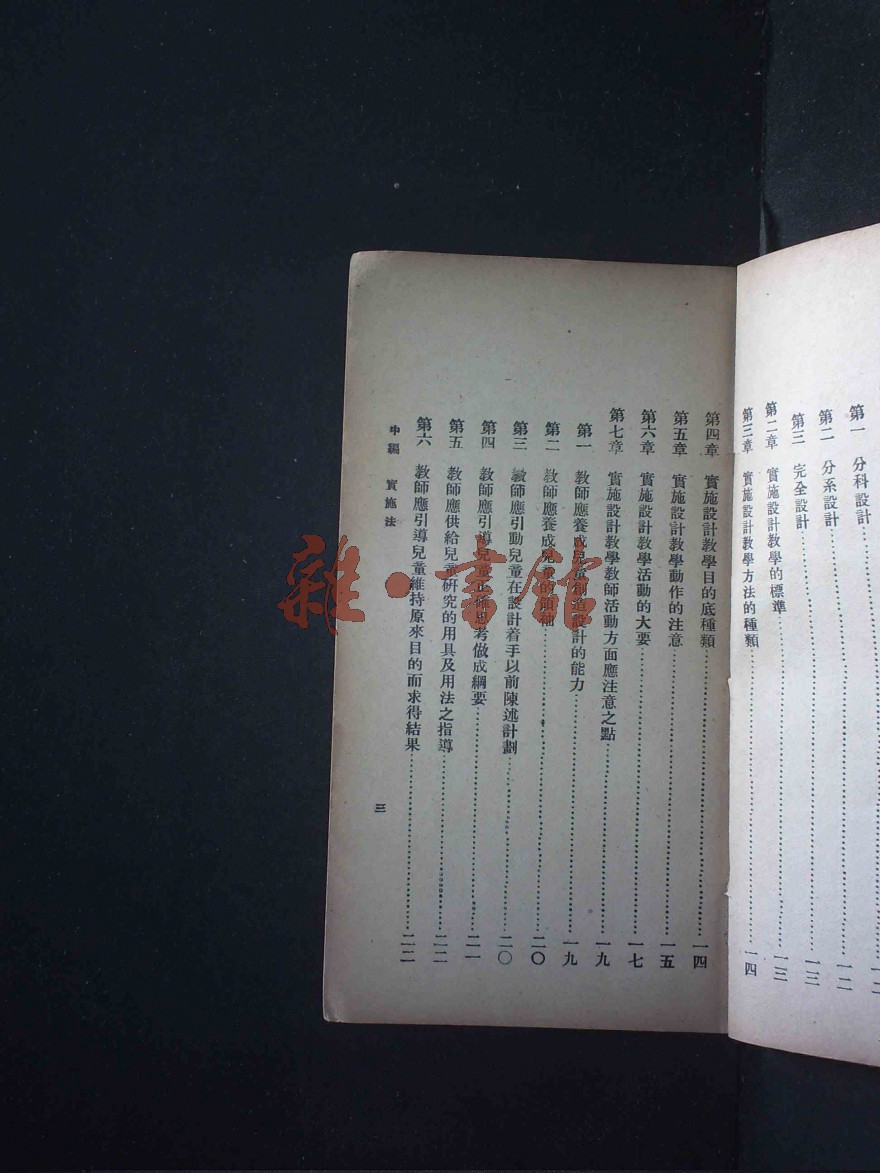 第一 分科設計
第二 分系設計……一二
第三 完全設計……一三
第二章 實施設計教學的標準……一三
第三章 實施設計教學方法的種類……一四
第四章 實施設計教學目的底種類……一四
第五章 實施設計教學動作的注意……一五
第六章 實施設計教學活動的大要……一七
第七章 實施設計教學教師活動方面應注意之點……一九
第一 教師應養成兒童創造設計的能力……一九
第二 教師應養成兒童的領袖……二〇
第三 教師應引動兒童在設計着手以前陳述計劃……二〇
第四 教師應引導兒童正確思考做成綱要……二一
第五 教師應供給兒童研究的用具及用法之指導……二二
第六 教師應引導兒童維持原來目的而求得結果……二二
中編 實施法
三
雜·書館